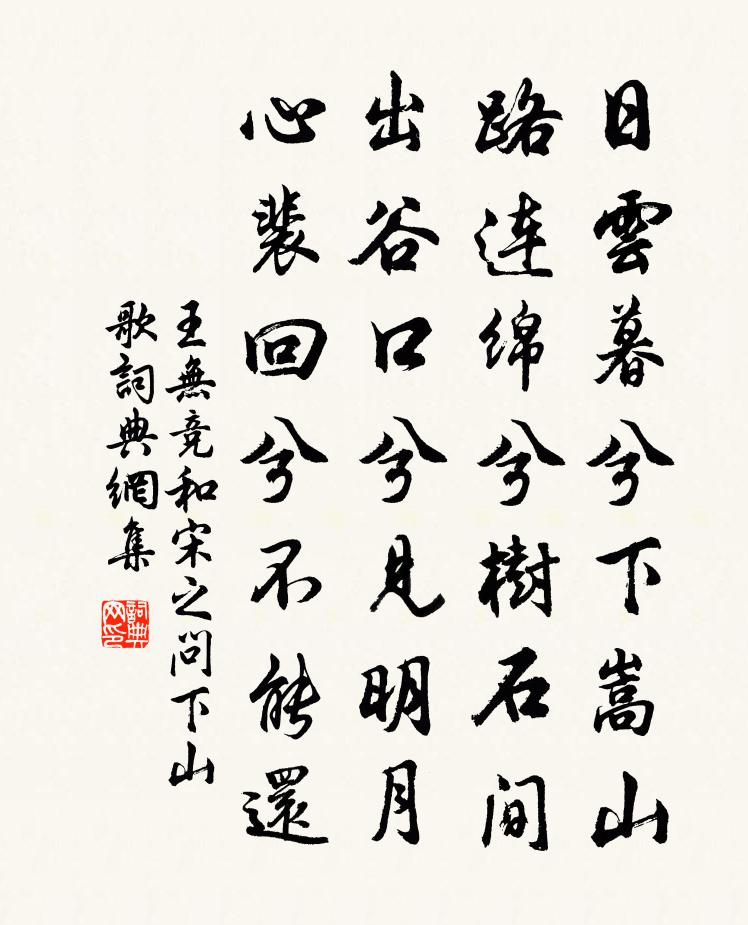 日雲暮兮下嵩山
路連綿兮樹石間
出谷口兮見明月
心裴回兮不能還
王無竞和宋之問下山
歌詞典網集
詞典网印